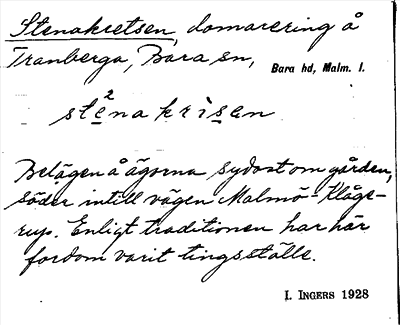 Stenakretsen, domarering å
Tranberga, Bara sn, Bara hd, Malm. l.
ste²na krìsen
Belägen å ägorna sydost om gården,
söder intill vägen Malmö-Klåge-
rup. Enligt traditionen har här
fordom varit tingsställe.
I. INGERS 1928